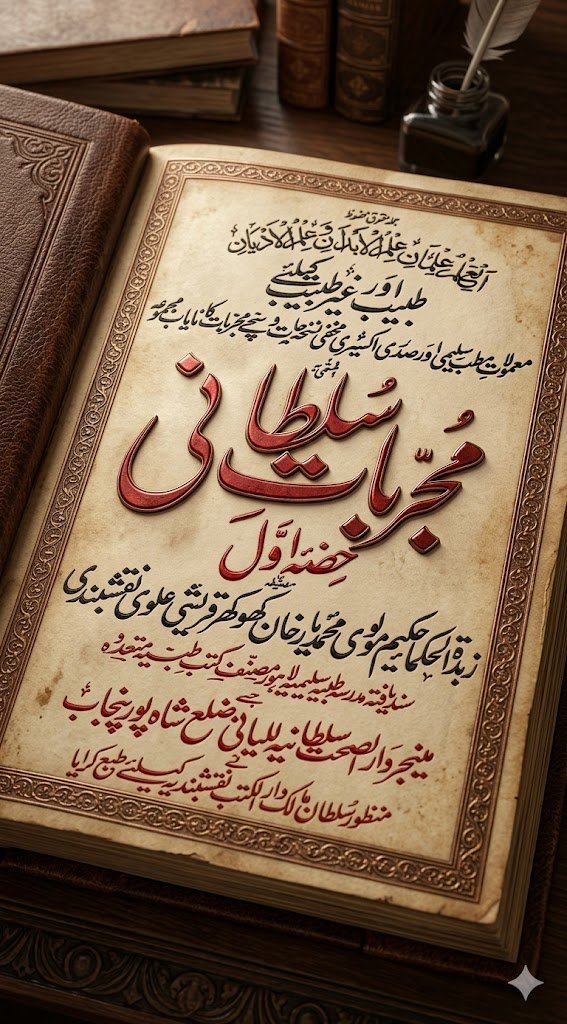 جملہ حقوق محفوظ
اَلْعِلْمُ عِلْمَانِ عِلْمُ الْاَبْدَانِ وَ عِلْمُ الْاَدْیَانِ
طبیب اور غیر طبیب کیلئے
معمولات مطب سلیمی اور صدری اکسیری مخفی نسخہ جات و سچے مجربات کا نایاب مجموعہ
مُجرّبات سُلطانی
حصّہ اوّل
زبدۃ الحکما حکیم مولوی محمد یار خان کھوکھر قریشی علوی نقشبندی
سند یافتہ مدرسہ طبیہ سلیمیہ لاہور مصنف کتب طبیہ متعددہ
مینیجر دار الصحت سلطانیہ للیانی ضلع شاہ پور پنجاب
جسے
منظور سُلطان مالک دار الکتب نقشبندیہ کیلئے طبع کرایا